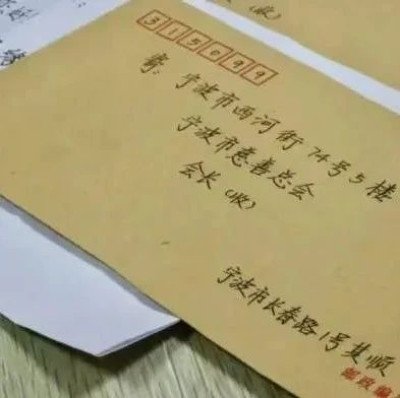 (收)
315099
寄: 宁波市西河街74号5楼
宁波市慈善总会
会长(收)
宁波市长春路1号其顺
邮政编